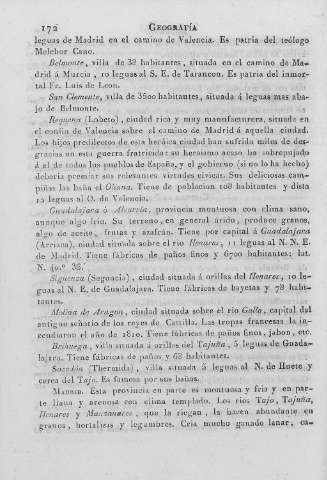 172 GEOGRAFÍA
leguas de Madrid en el camino de Valencia. Es patria del teólogo
Melchor Cano.
Belmonte, villa de 38 habitantes, situada en el camino de Ma-
drid á Murcia, 10 leguas al S. E. de Tarancon. Es patria del inmor-
tal Fr. Luis de Leon.
San Clemente, villa de 3500 habitantes, situada 4 leguas mas aba-
jo de Belmonte.
Requena (Lobeto), ciudad rica y muy manufacturera, situada en
el confin de Valencia sobre el camino de Madrid á aquella ciudad.
Los hijos predilectos de esta heróica ciudad han sufrido miles de des-
gracias en esta guerra fratricida: su heroismo acaso ha sobrepujado
á el de todos los pueblos de España, y el gobierno (si no lo ha hecho)
deberia premiar sus relevantes virtudes cívicas. Sus deliciosas cam-
piñas las baña el Oliana. Tiene de poblacion 108 habitantes y dista
12 leguas al O. de Valencia.
Guadalajara ó Alcarria, provincia montuosa con clima sano,
aunque algo frio. Su terreno, en general árido, produce granos,
algo de aceite, frutas y azafrán. Tiene por capital á Guadalajara
(Arriaca), ciudad situada sobre el rio Henares, 11 leguas al N. N. E.
de Madrid. Tiene fábricas de paños finos y 6700 habitantes: lat.
N. 40.º 36.
Sigüenza (Segoncia), ciudad situada á orillas del Henares, 10 le-
guas al N. E. de Guadalajara. Tiene fábricas de bayetas y 78 habi-
tantes.
Molina de Aragon, ciudad situada sobre el rio Gallo, capital del
antiguo señorío de los reyes de Castilla. Las tropas francesas la in-
cendiaron el año de 1810. Tiene fábricas de paños finos, jabon, etc.
Brihuega, villa situada á orillas del Tajuña, 5 leguas de Guada-
lajara. Tiene fábricas de paños y 68 habitantes.
Sacedón (Thermida), villa situada 5 leguas al N. de Huete y
cerca del Tajo. Es famosa por sus baños.
MADRID. Esta provincia en parte es montuosa y fria y en par-
te llana y arenosa con clima templado. Los rios Tajo, Tajuña,
Henares y Manzanares, que la riegan, la hacen abundante en
granos, hortalizas y legumbres. Cria mucho ganado lanar, ca-